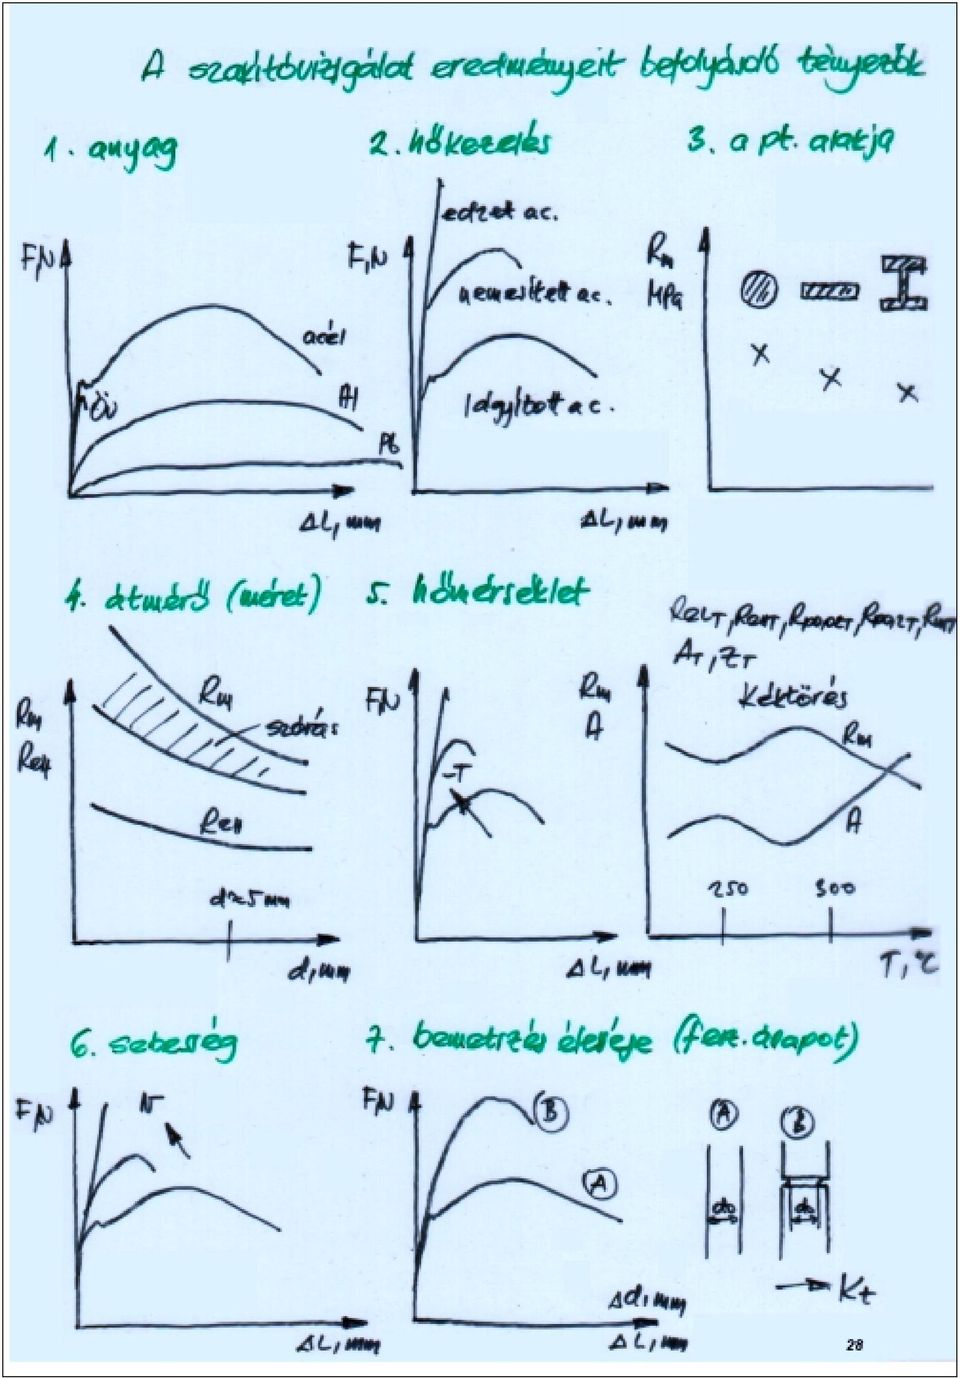 A szakítóvizsgálat eredményeit befolyásoló tényezők
1. anyag
2. hőkezelés
3. a pt. alakja
F,N
acél
Al
Öv
Pb
ΔL, mm
F,N
edzett ac.
nemesített ac.
lágyított ac.
ΔL, mm
Rm
MPa
4. átmérő (méret)
5. hőmérséklet
Rm
ReH
Rm
szórás
ReH
d≈5mm
d, mm
F,N
-T
ΔL, mm
ReLT, ReHT, Rp0,2T, RmT
AT, ZT
Kéktörés
Rm
A
Rm
A
250
300
T, °C
6. sebesség
7. bemetszés élessége (fesz. állapot)
F,N
v
ΔL, mm
F,N
B
A
Δd, mm
ΔL, mm
A
B
d0
d0
Kt
28